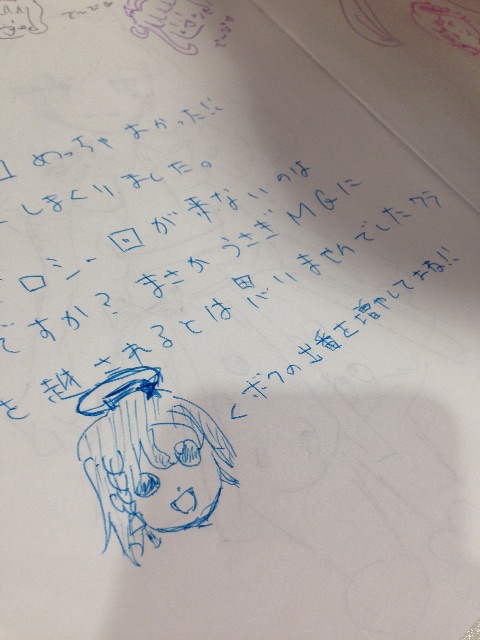 めっちゃよかった!!
しまくりました。
ロシー回が来ないのは
ですか? まさかうさぎMGに
を越されるとは思いませんでしたワラ
<ボクの出番を増やしてよね!!